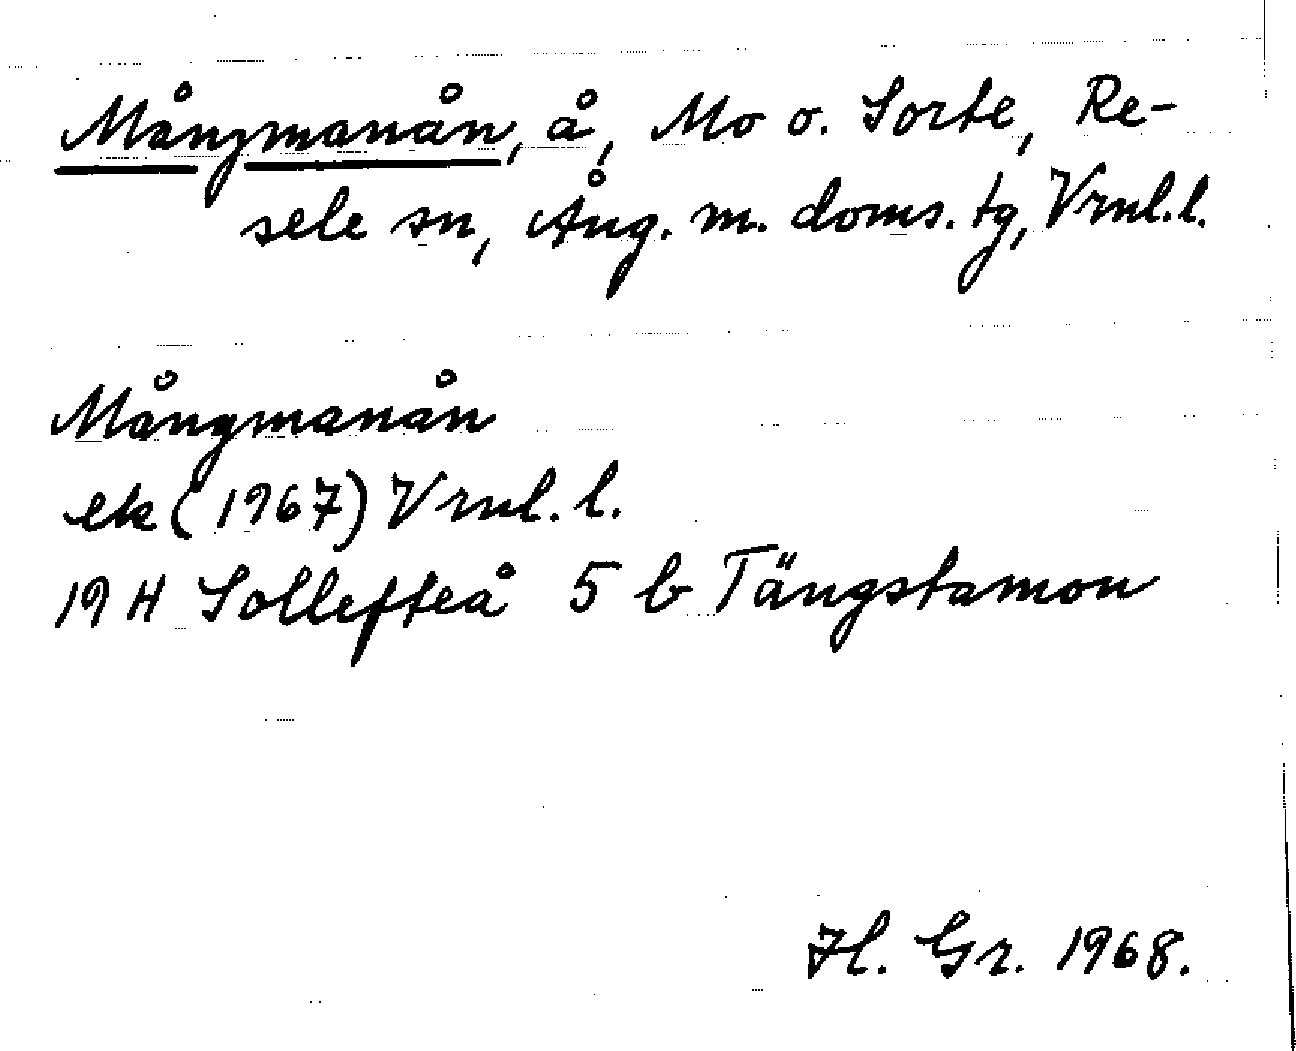 Mångmanån, å, Mo o. Sorte, Re-
sele sn, Ång. m. doms. tg, Vrnl.l.
Mångmanån
ek (1967) Vrnl. l.
19 H Sollefteå 5 b Tängstamon
Hl. Gr. 1968.